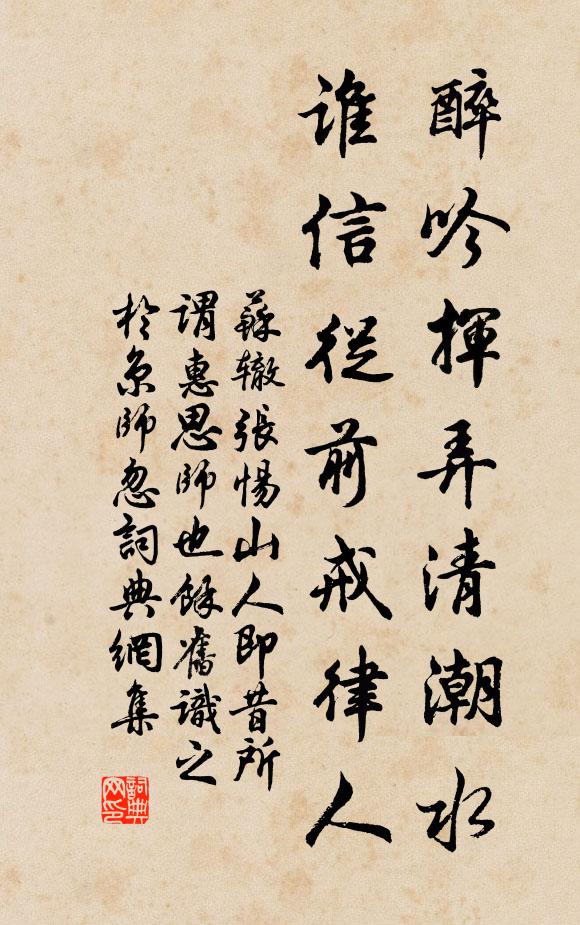 醉吟揮弄清潮水
誰信從前戒律人
蘇轍張惕山人即昔所
謂惠思師也餘舊識之
於京師忽詞典網集
詞典網印